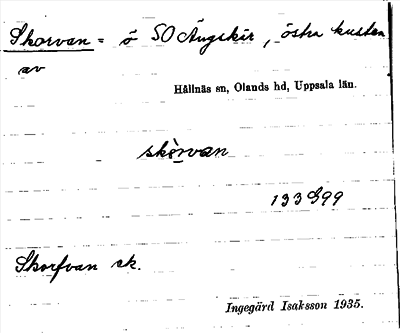 Skorvan = ö SO Ängskär, östra kusten
av
Hållnäs sn, Olands hd, Uppsala län.
skò̱rvan
133 G99
Skorfvan sk.
Ingegärd Isaksson 1935.